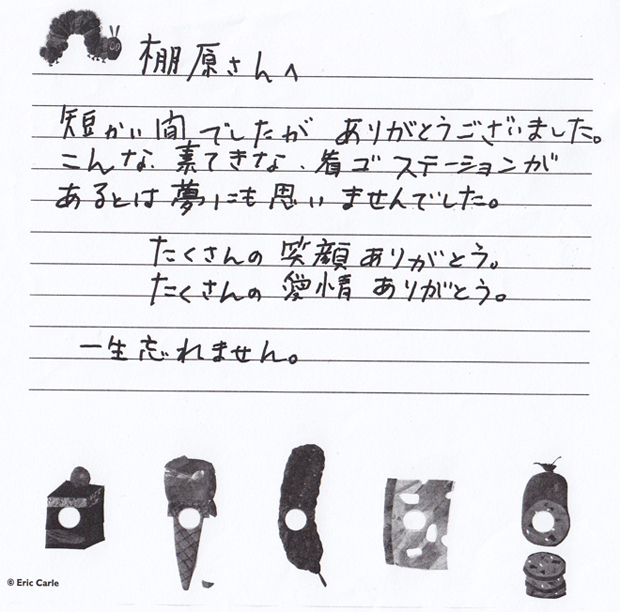 棚原さんへ
短かい間でしたが ありがとうございました。
こんな、素てきな、看ゴステーションが
あるとは夢にも思いませんでした。
たくさんの 笑顔ありがとう。
たくさんの 愛情 ありがとう。
一生忘れません。
© Eric Carle